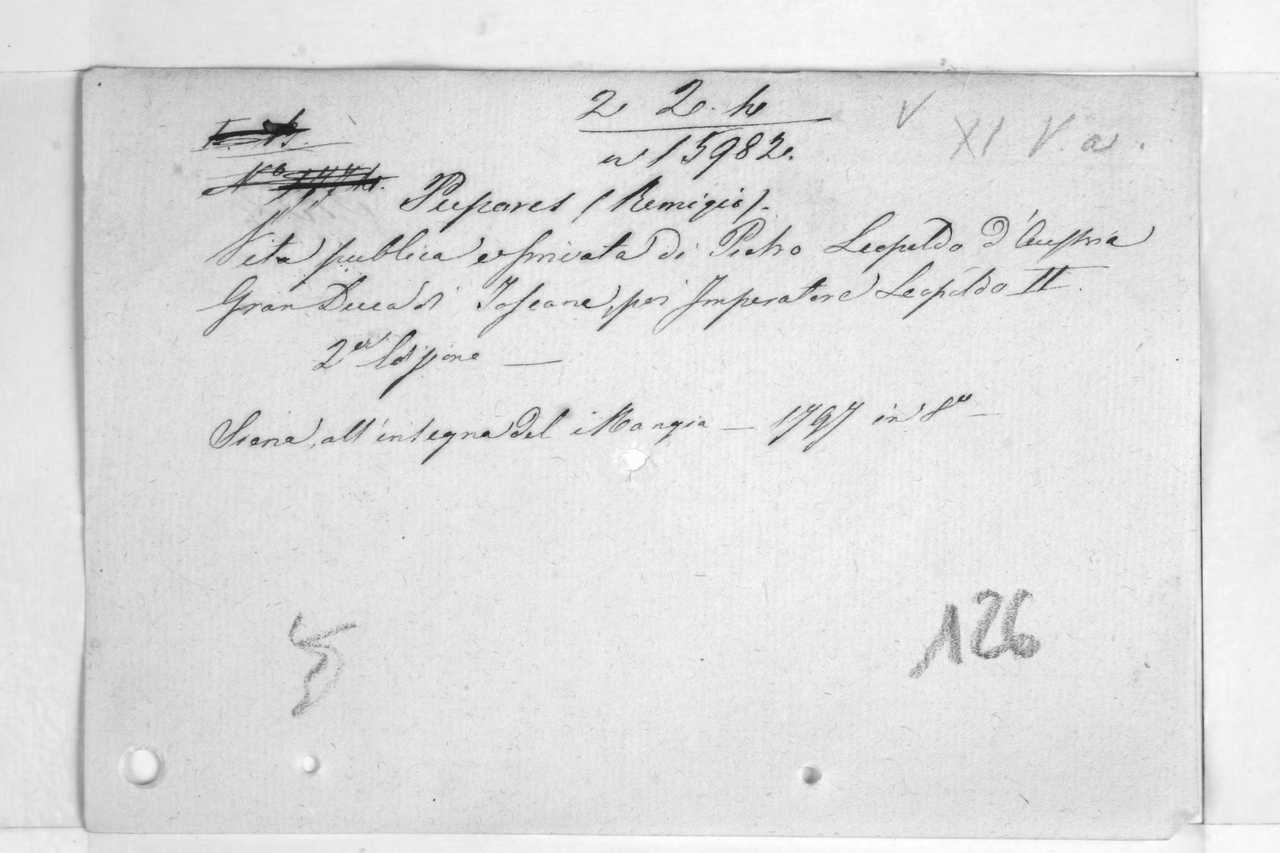 2 2. h
n 15982.
V XI V. a.
Pupares (Remigio).
Vita publica e privata di Pietro Leopoldo d'Austria
Gran Duca di Toscana, poi Imperatore Leopoldo II.
2er Edizione —
Siena, all'insegna del Mangia — 1797 in 8º —
5 126